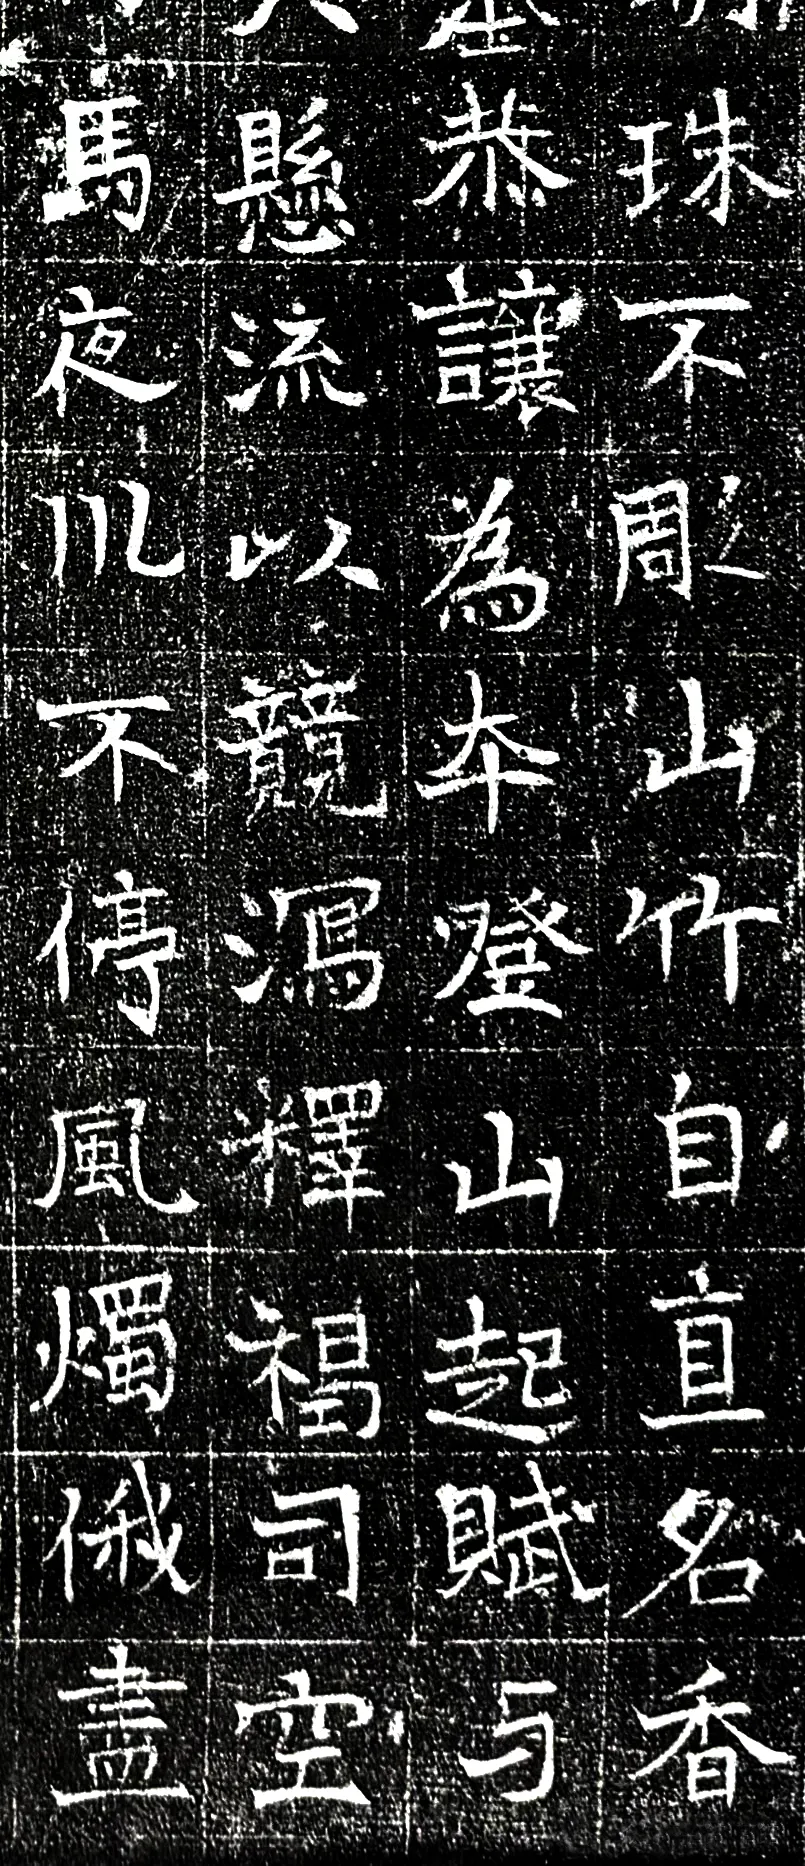 珠不彫山竹自直名香
恭讓為本登山起賦与
懸流以競瀉釋褐司空
馬夜川不停風燭俄盡